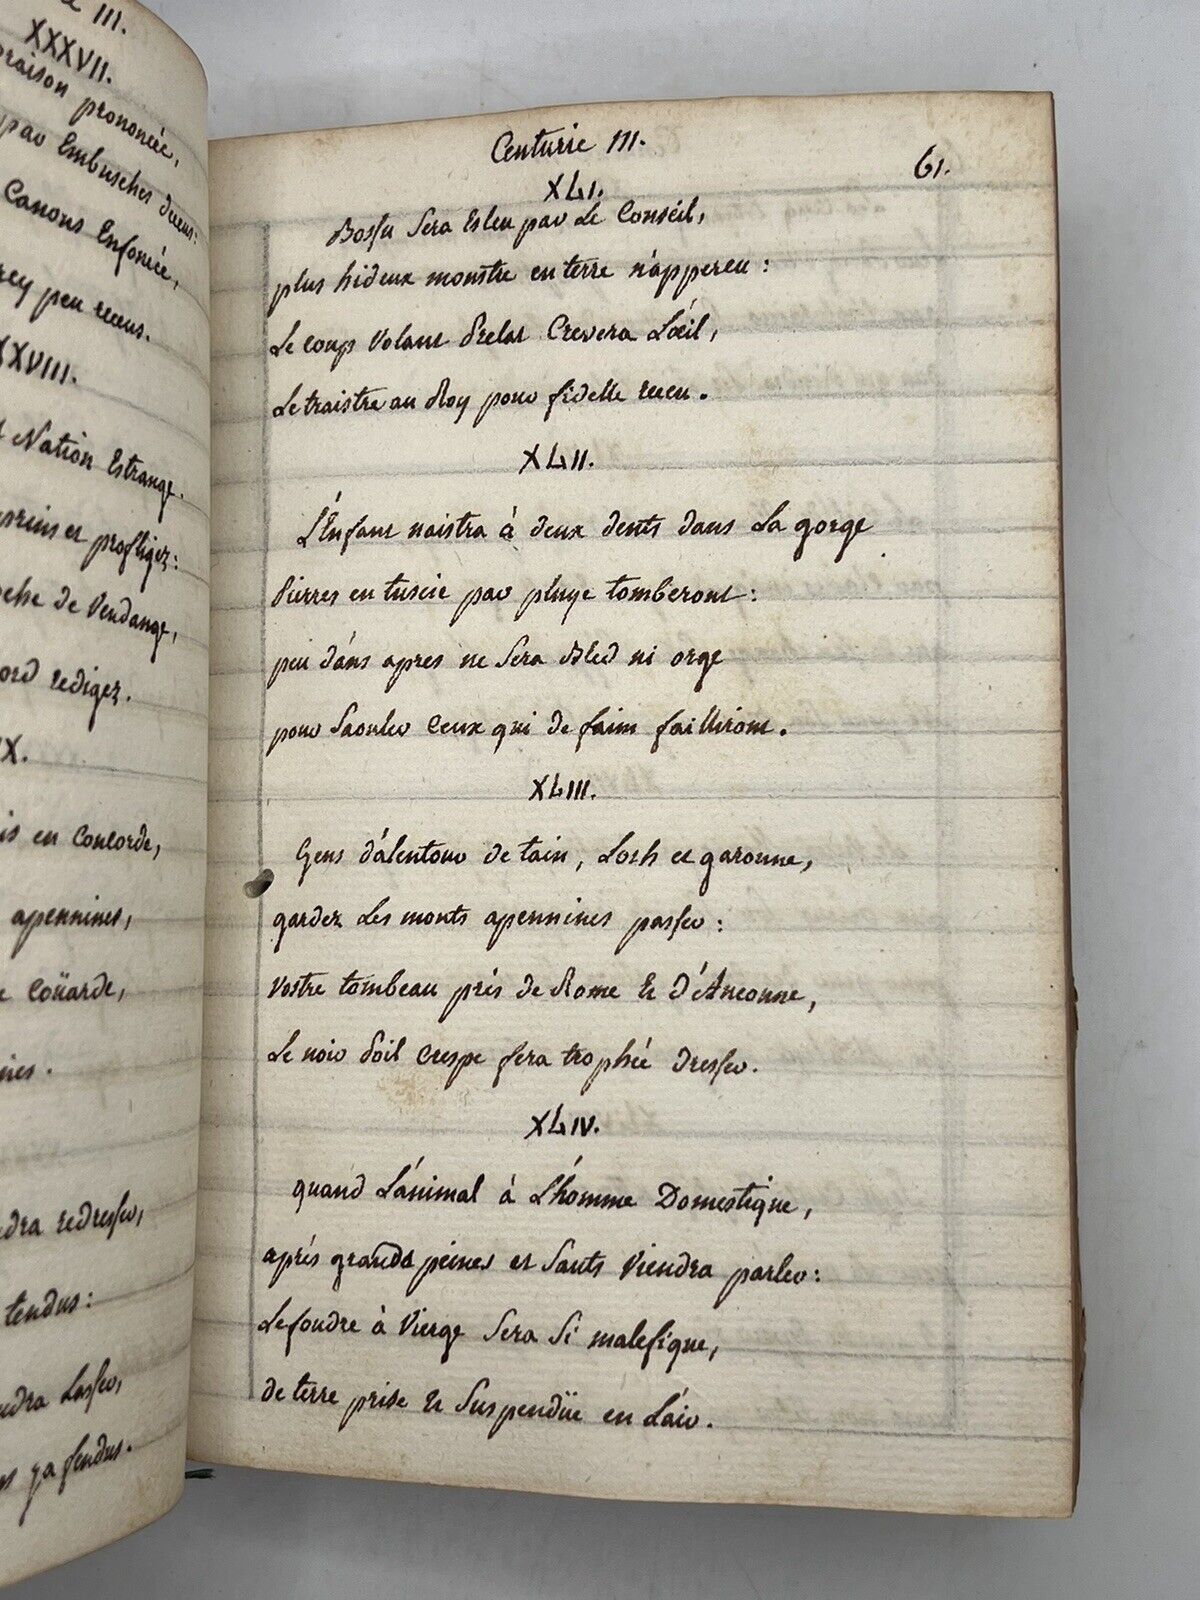 III.
XXXVII.
oraison prononcée,
par Embusches deceus:
Canons Enfoncée,
peu receus.
XXXVIII.
Nation Estrange.
et profligez:
de Vendange,
redigez.
en Concorde,
apennines,
Coüarde,
redresser,
tendus:
Lasser,
ça fendus.
Centurie III.
61.
XLI.
Bossu Sera Esleu par Le Conséil,
plus hideux monstre en terre n'apperceu:
Le coup Volant Prelat Crevera L'œil,
Le traistre au Roy pour fidelle receu.
XLII.
L'Enfant naistra à deux dents dans La gorge
Pierres en tuscie par pluye tomberont:
peu d'ans apres ne Sera Bled ni orge
pour Saouler Ceux qui de faim failliront.
XLIII.
Gens d'alentour de tain, Loth et garonne,
gardez Les monts apennines passer:
Vostre tombeau prés de Rome Et d'Anconne,
Le noir Poil crespe fera trophée dresser.
XLIV.
quand L'animal à L'homme Domestique,
aprés grands peines et Sauts Viendra parler:
Le foudre à Vierge Sera Si malefique,
de terre prise Et Suspendüe en L'air.